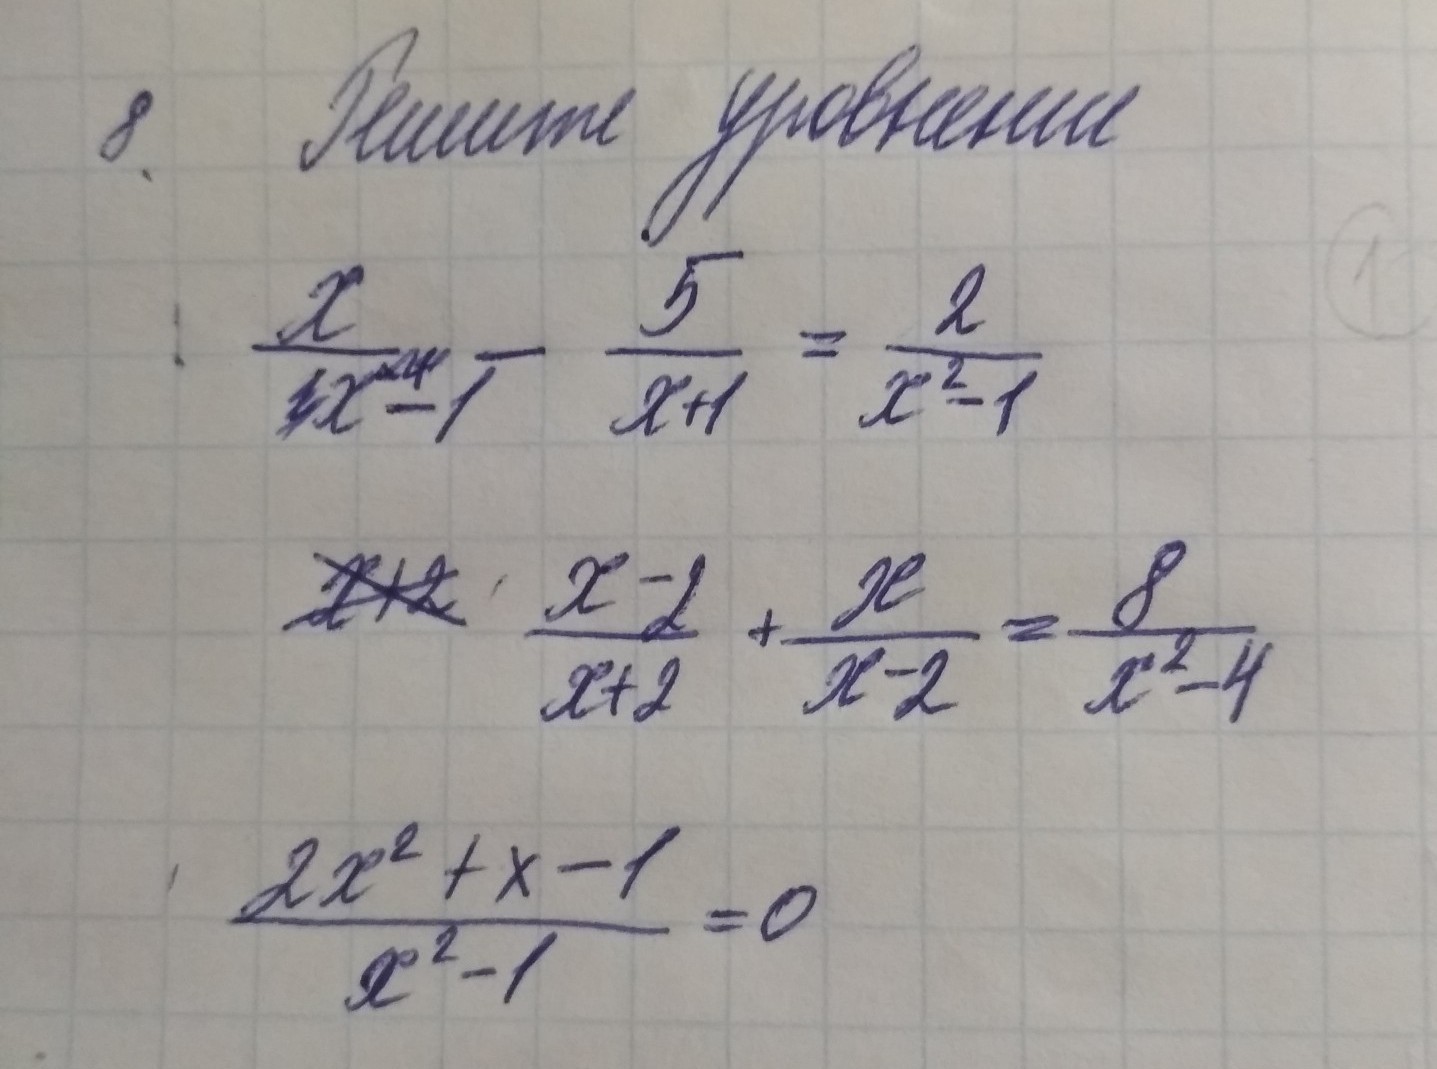 8. Решите уровнении
x/(x-1) - 5/(x+1) = 2/(x²-1)
x+2 (x-2)/(x+2) + x/(x-2) = 8/(x²-4)
(2x²+x-1)/(x²-1) = 0